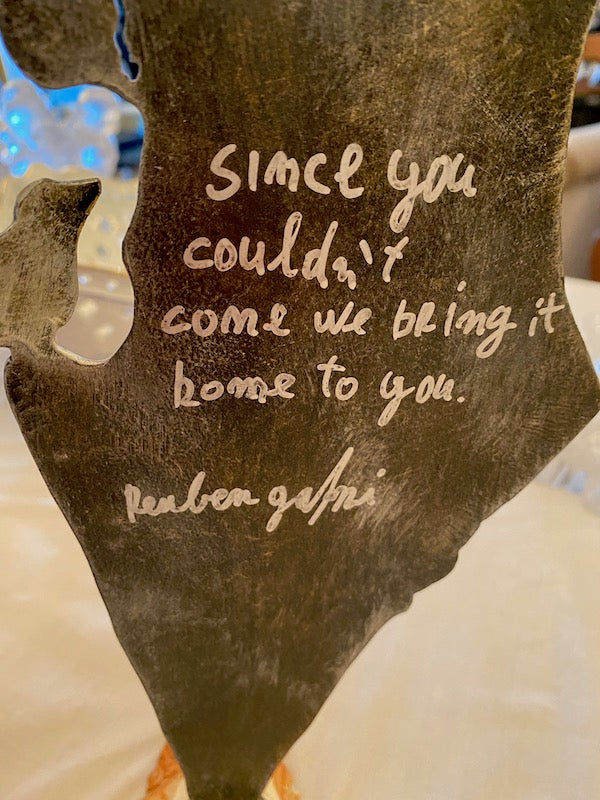 Since you
couldn't
come we bring it
home to you.
Reuben gafni